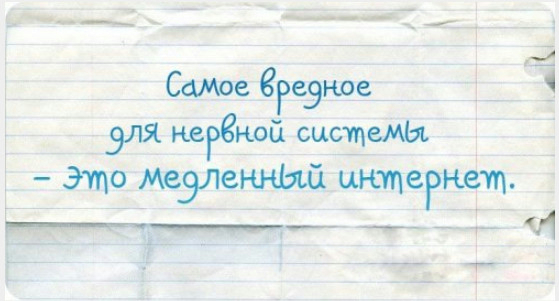 Самое вредное
для нервной системы
– это медленный интернет.